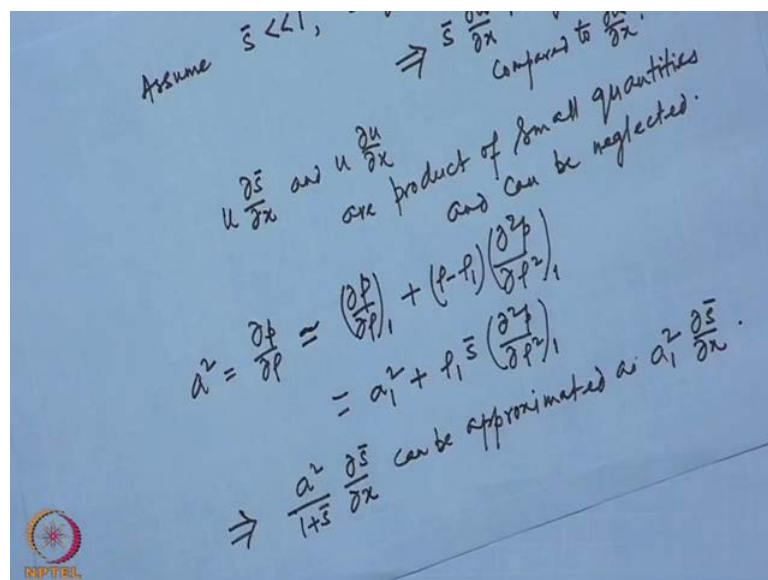 Assume s̄ <<1,
⇒ s̄ ∂u/∂x
compared to ∂u/∂x.
u ∂s̄/∂x and u ∂u/∂x
are product of small quantities
and can be neglected.
a² = ∂p/∂ρ ≃ (∂p/∂ρ)₁ + (ρ-ρ₁)(∂²p/∂ρ²)₁
= a₁² + ρ₁ s̄ (∂²p/∂ρ²)₁
⇒ a²/(1+s̄) ∂s̄/∂x can be approximated as a₁² ∂s̄/∂x.
NPTEL